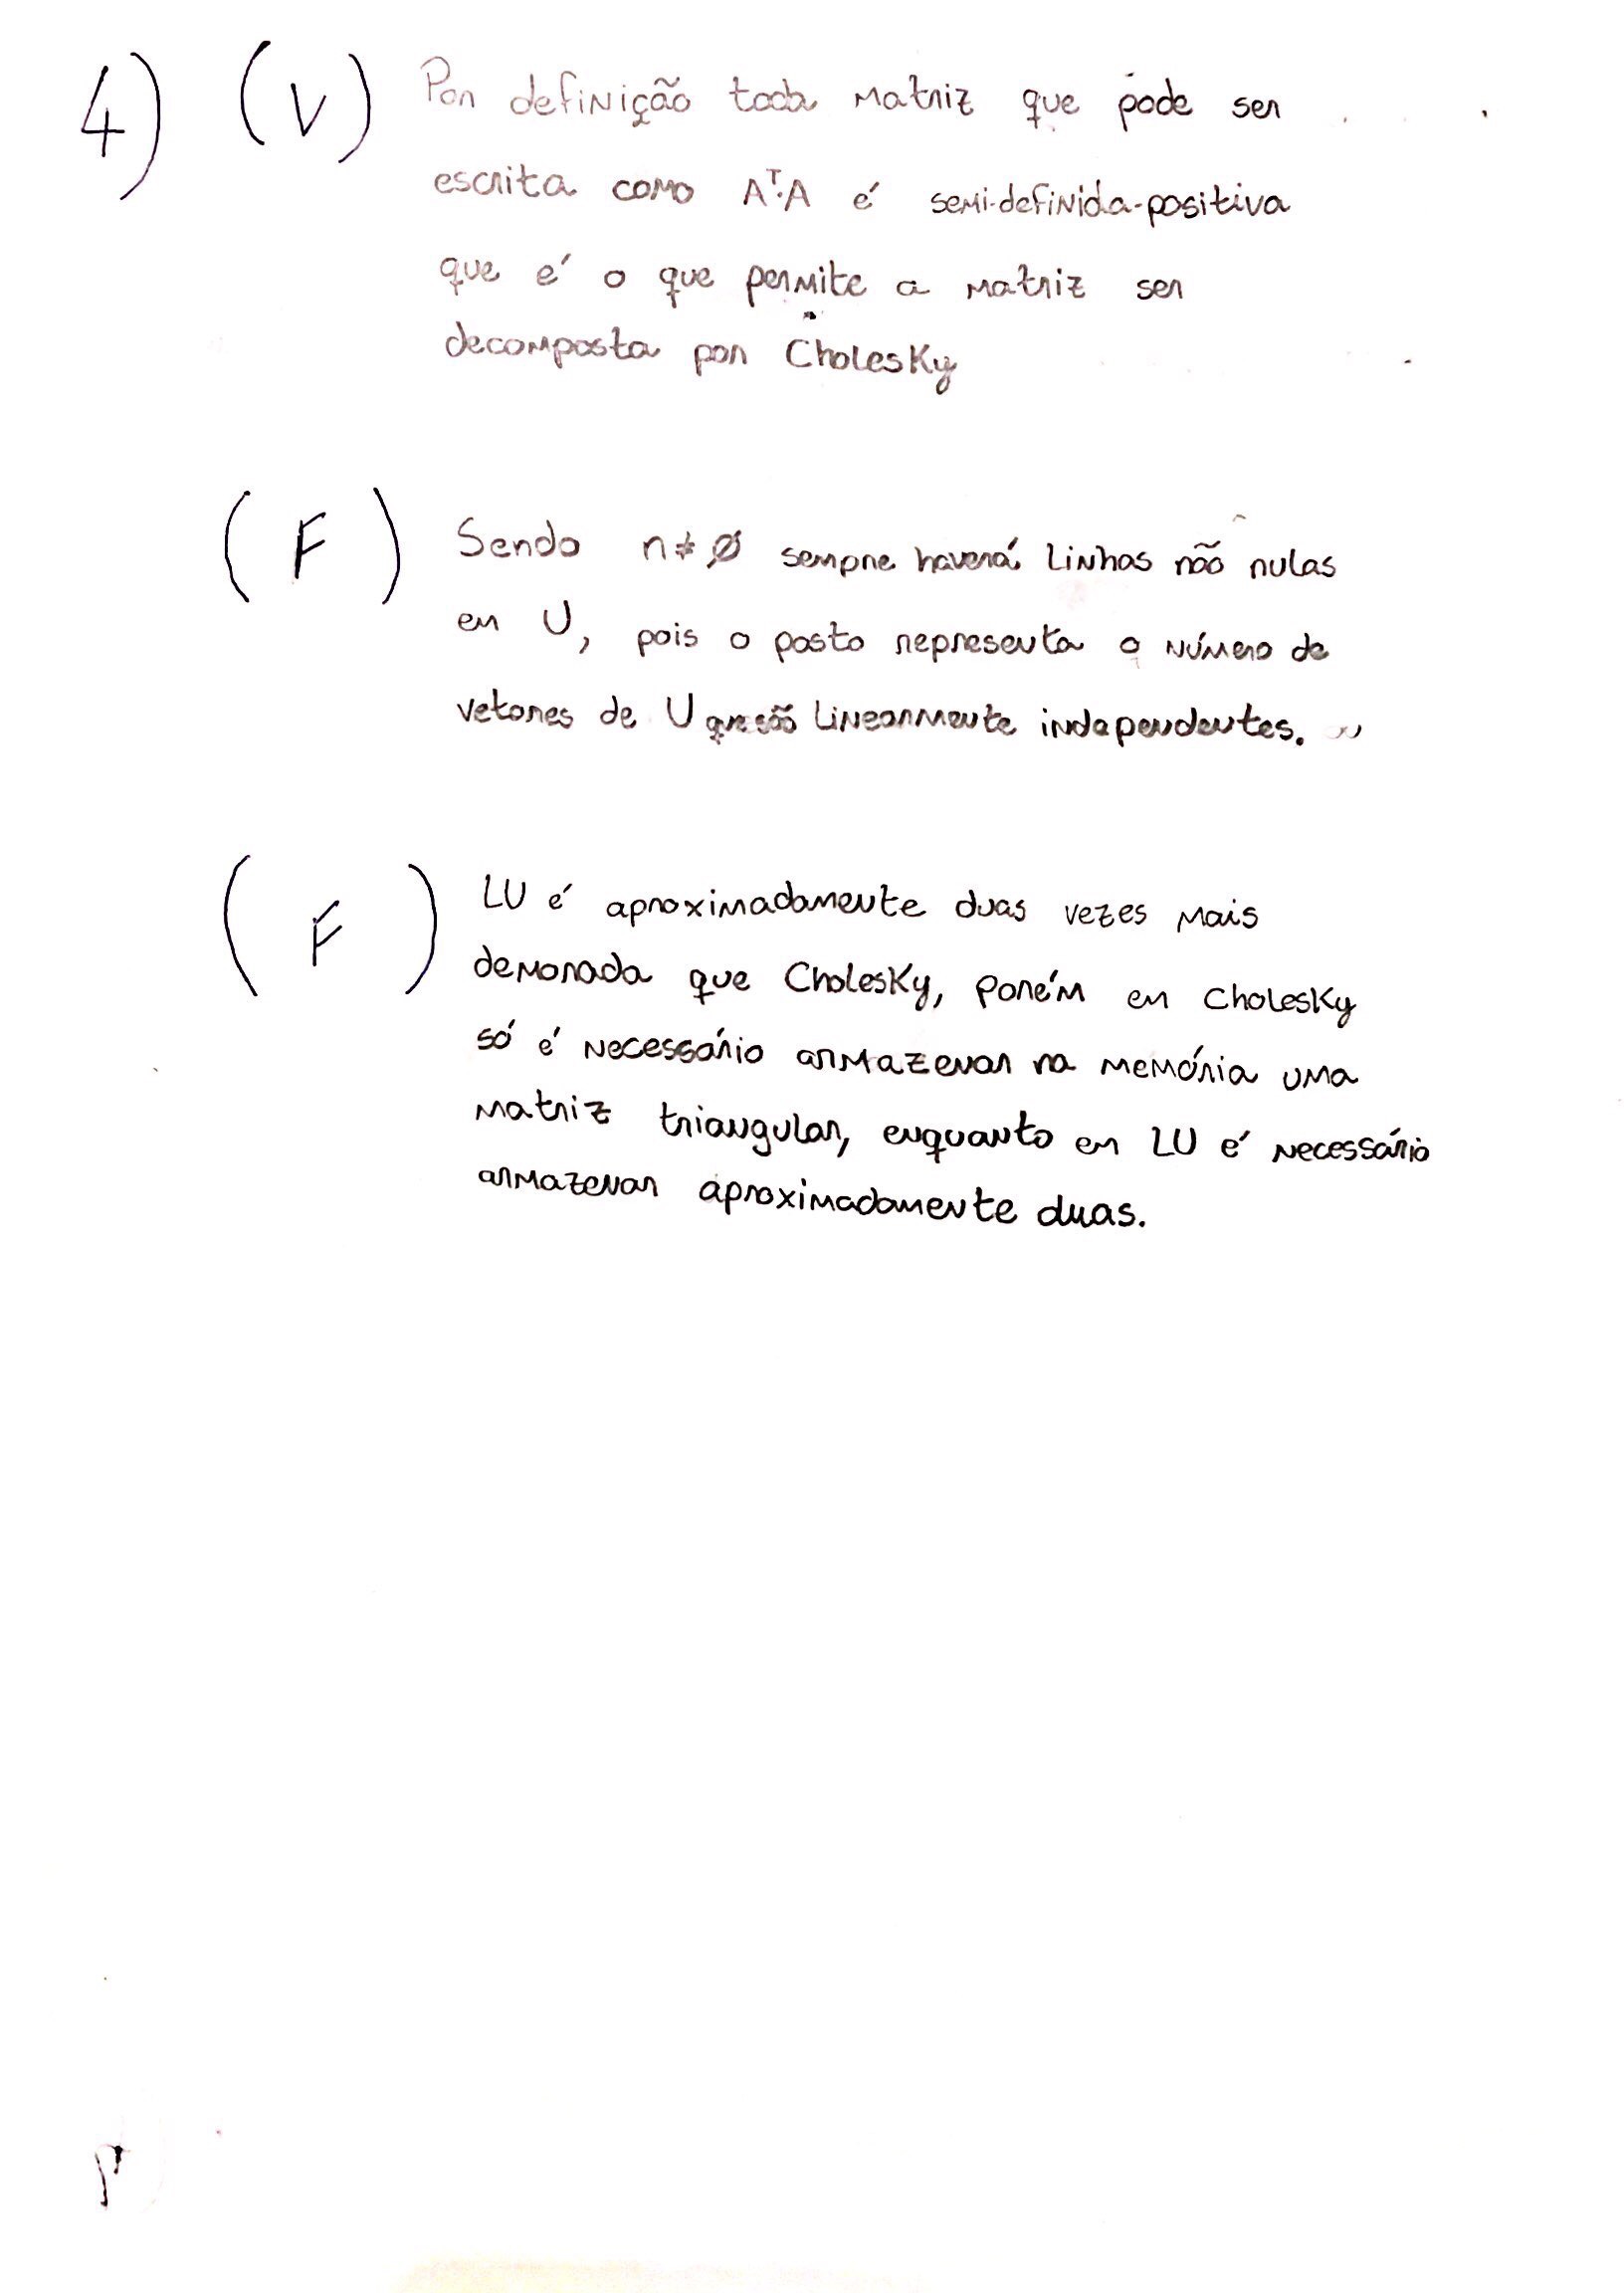 4) (V) Por definição toda matriz que pode ser
escrita como Aᵀ.A é semi-definida-positiva
que é o que permite a matriz ser
decomposta por Cholesky
(F) Sendo n≠Ø sempre haverá linhas não nulas
em U, pois o posto representa o número de
vetores de U que são linearmente independentes.
(F) LU é aproximadamente duas vezes mais
demorada que Cholesky, porém em Cholesky
só é necessário armazenar na memória uma
matriz triangular, enquanto em LU é necessário
armazenar aproximadamente duas.